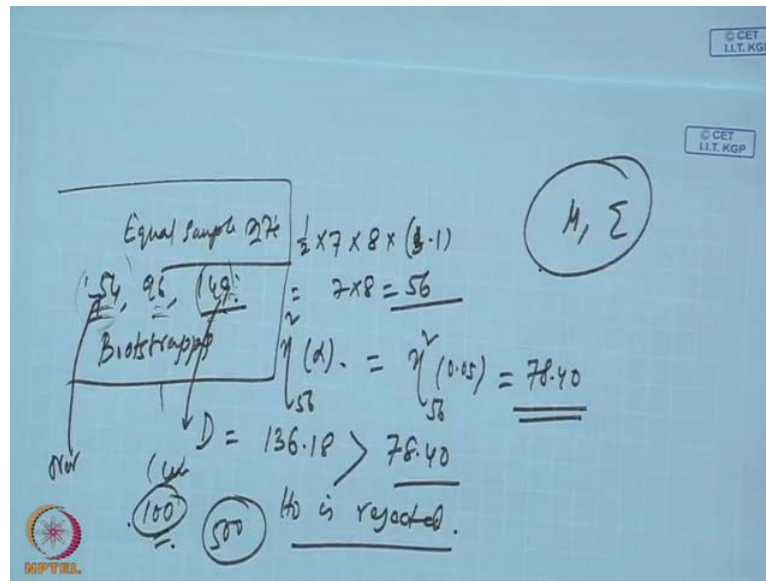 © CET
I.I.T. KGP
© CET
I.I.T. KGP
μ, Σ
Equal Sample size
54, 96, 149
Bootstrapp
1/2 × 7 × 8 × (3-1)
= 7×8 = 56
χ²₅₆ (α). = χ²₅₆ (0.05) = 78.40
D = 136.18 > 78.40
H₀ is rejected.
100
500
NPTEL